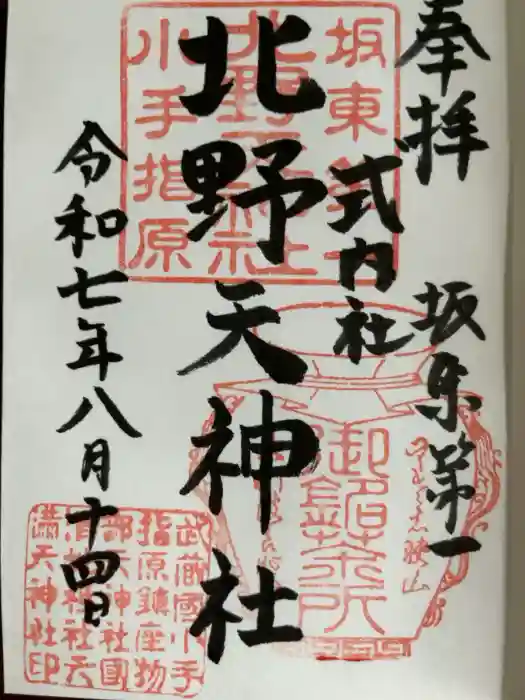 奉拝
坂東第一
式内社
北野天神社
令和七年八月十四日
坂東第一
北野天神社
小手指原
武蔵國小手
指原鎮座物
部天神社國
渭地祇社天
満天神社印